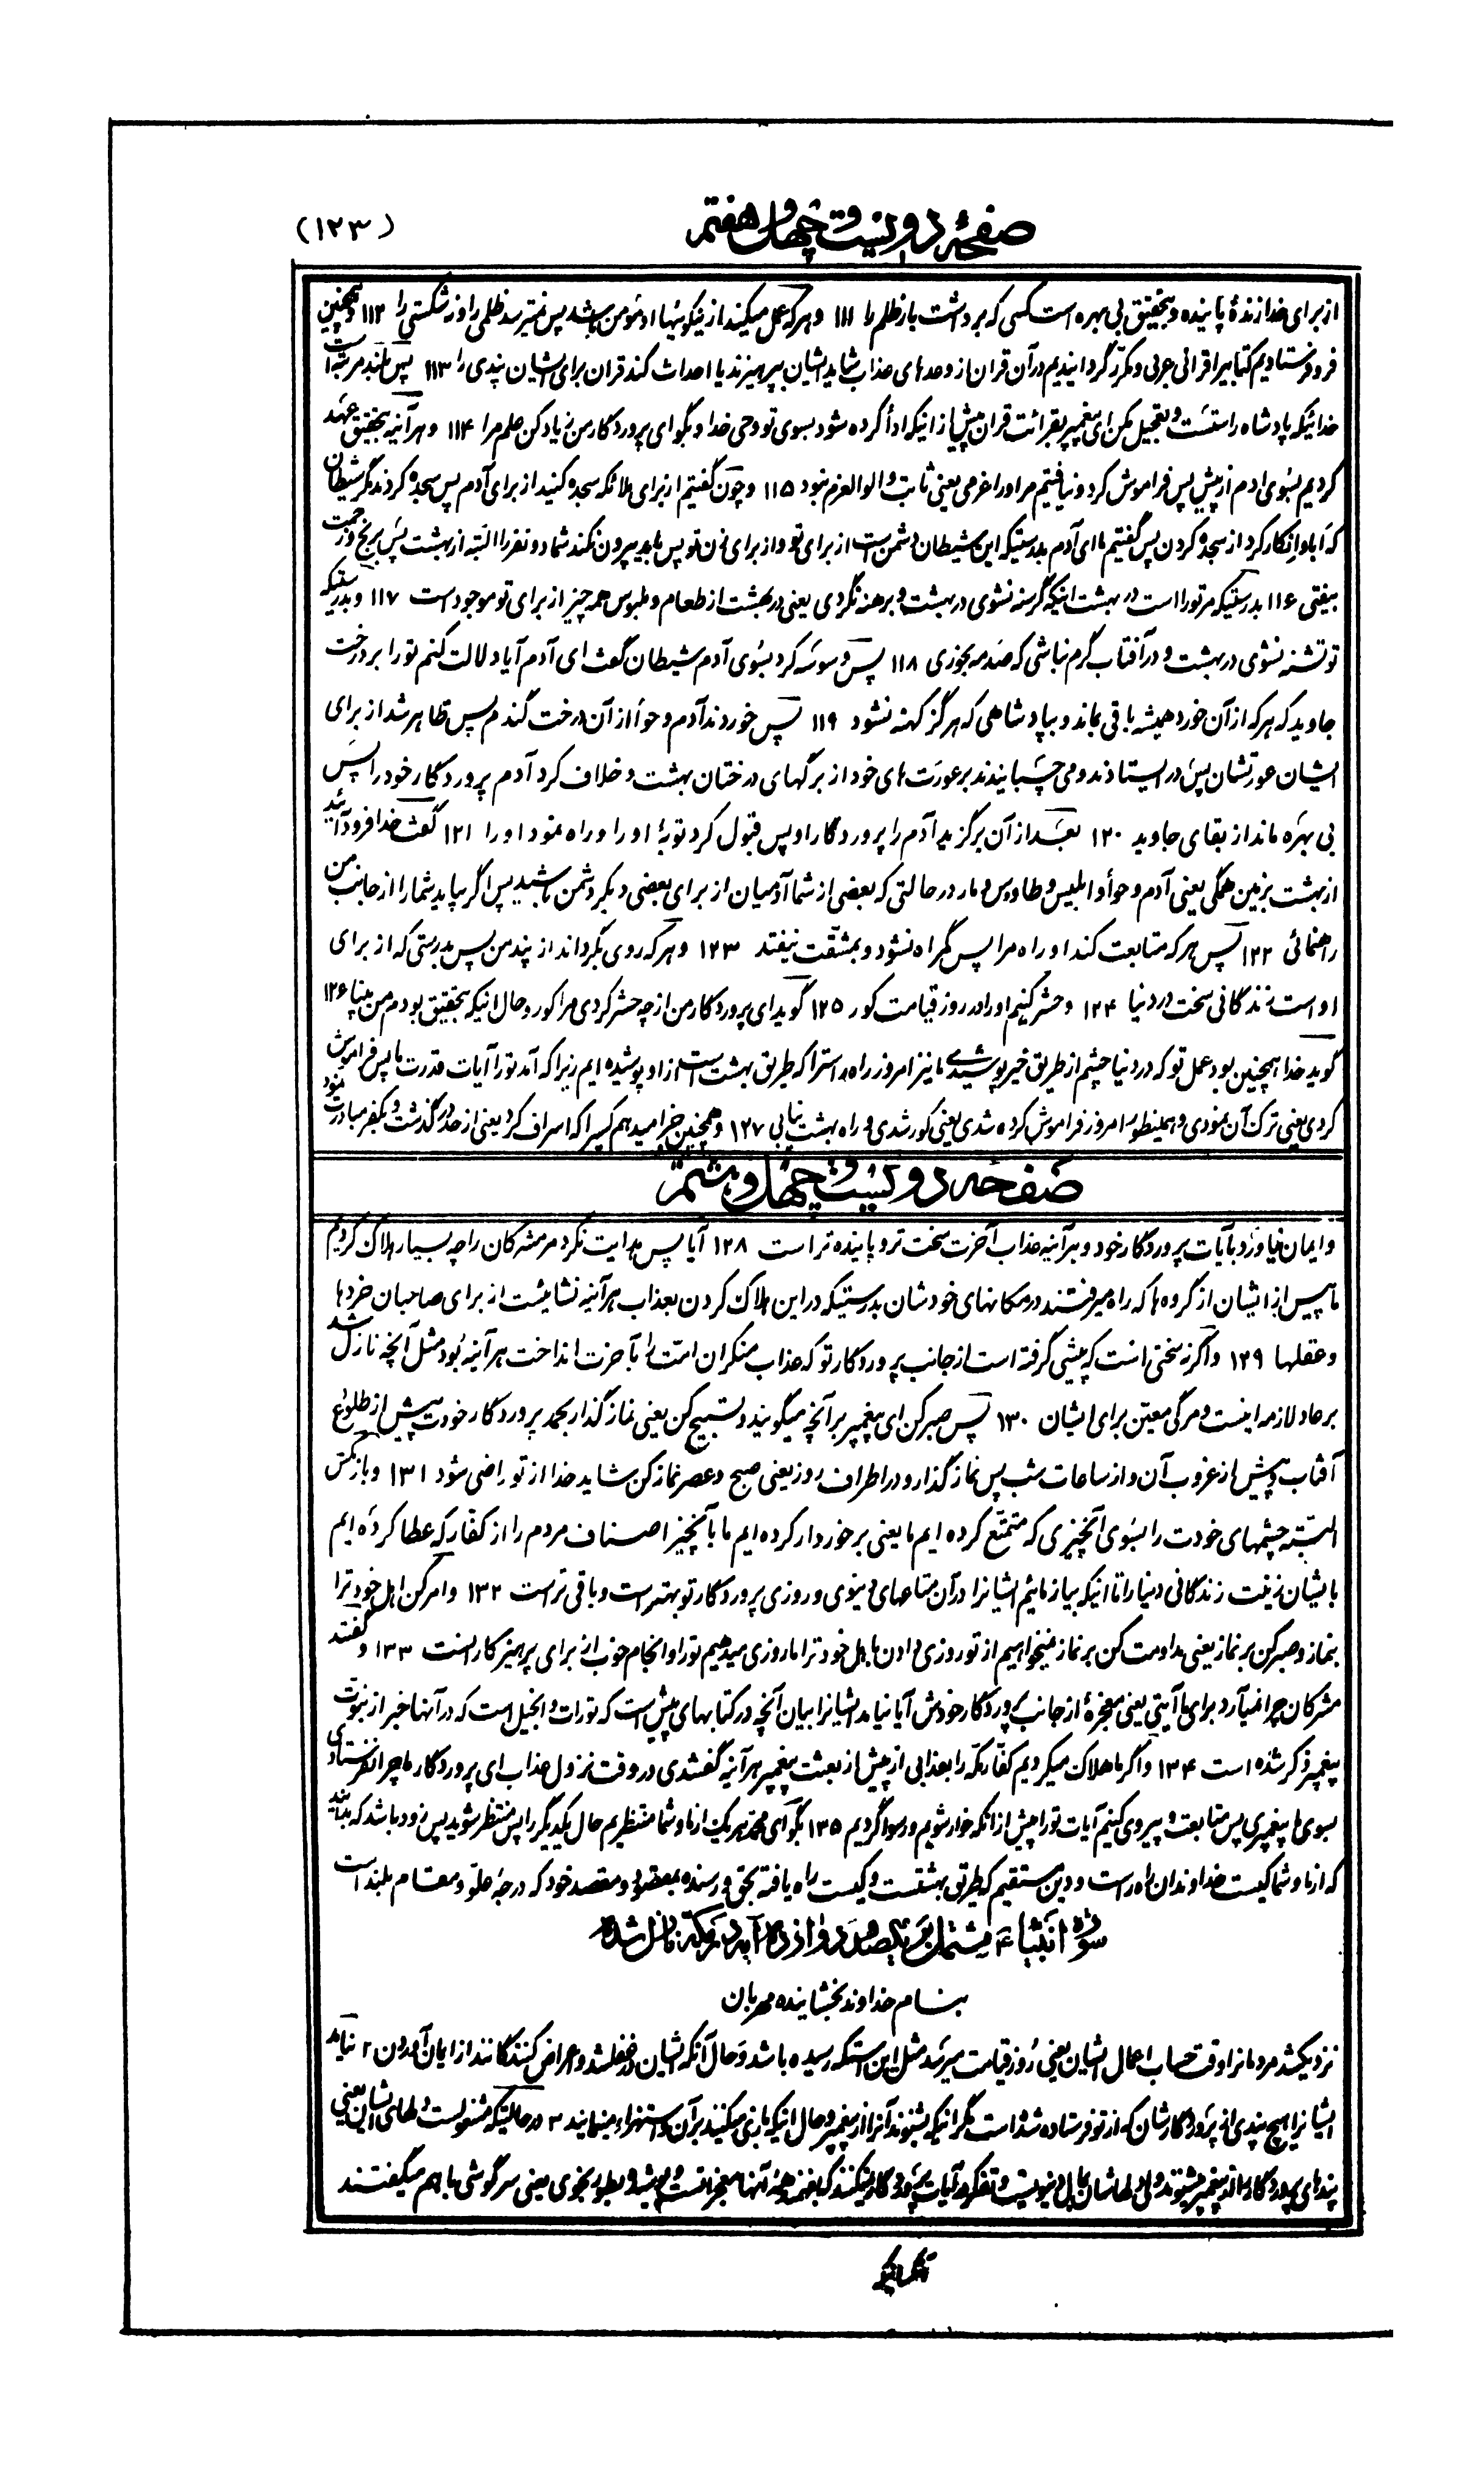 صفحهٔ دویست و چهل و هفتم
(۱۲۳)
از برای خدا زندهٔ پاینده و بتحقیق بی بهره است کسی که برداشت بار ظلم را ۱۱۱ و هر که عمل میکند از نیکوئیها او مؤمن باشد پس نمیترسد ظلمی را و نه شکستی را ۱۱۲ و همچنین
فرو فرستادیم کتابیرا قرانی عربی و مکرّر گردانیدیم در آن قران از وعدهای عذاب شاید ایشان بپرهیزند یا احداث کند قران برای ایشان پندی را ۱۱۳ پس بلند مرتبه است
خدائیکه پادشاه راستست و تعجیل مکن ای پیغمبر بقرائت قران پیش از انیکه ادا کرده شود بسوی تو وحی خدا و بگو ای پروردگار من زیاد کن علم مرا ۱۱۴ و هر آینه بتحقیق عهد
کردیم بسوی ادم از پیش پس فراموش کرد و نیافتیم مر او را عزمی یعنی ثابت و الوالعزم نبود ۱۱۵ و چون گفتیم از برای ملائکه سجده کنید از برای آدم پس سجده کردند مگر شیطان
که ابا و انکار کرد از سجده کردن پس گفتیم ما ای آدم بدرستیکه این شیطان دشمن است از برای تو و از برای زن تو پس باید بیرون نکند شما دو نفر را البته از بهشت پس برنج و زحمت
بیفتی ۱۱۶ بدرستیکه مر تو را است در بهشت اینکه گرسنه نشوی در بهشت و برهنه نگردی یعنی در بهشت از طعام و ملبوس همه چیز از برای تو موجود است ۱۱۷ و بدرستیکه
تو تشنه نشوی در بهشت و در آفتاب گرم نباشی که صدمه بخوری ۱۱۸ پس وسوسه کرد بسوی آدم شیطان گفت ای آدم آیا دلالت کنم تو را بر درخت
جاوید که هر که از آن خورد همیشه باقی بماند و بپادشاهی که هرگز کهنه نشود ۱۱۹ پس خوردند آدم و حوا از آن درخت گندم پس ظاهر شد از برای
ایشان عورتشان پس در ایستادند و می چسبانیدند بر عورتهای خود از برگهای درختان بهشت و خلاف کرد آدم پروردگار خود را پس
بی بهره ماند از بقای جاوید ۱۲۰ بعد از آن برگزید آدم را پروردگار او پس قبول کرد توبهٔ او را و راه نمود او را ۱۲۱ گفت خدا فرود آئید
از بهشت بزمین همگی یعنی آدم و حوا و ابلیس و طاوس و مار در حالتی که بعضی از شما آدمیان از برای بعضی دیگر دشمن باشید پس اگر بیاید شما را از جانب من
راهنمائی ۱۲۲ پس هر که متابعت کند او راه مرا پس گمراه نشود و بمشقّت نیفتد ۱۲۳ و هر که روی بگرداند از پند من پس بدرستی که از برای
او است زندگانی سخت در دنیا ۱۲۴ و حشر کنیم او را در روز قیامت کور ۱۲۵ گوید ای پروردگار من از چه حشر کردی مرا کور و حال انیکه بتحقیق بودم من بینا ۱۲۶
گوید خدا همچنین بود عمل تو که در دنیا چشم از طریق خیر پوشیدی ما نیز امروز راه راستراکه طریق بهشت است از او پوشیده ایم زیرا که آمد تو را آیات قدرت ما پس فراموش
کردی یعنی ترک آن نمودی و همینطور امروز فراموش کرده شدی یعنی کور شدی و راه بهشت نیابی ۱۲۷ و همچنین جزا میدهیم کسیرا که اسراف کرد یعنی از حد در گذشت و بکفر مبادرت نمود
صفحهٔ دویست و چهل و هشتم
و ایمان نیاورد بآیات پروردگار خود و هر آینه عذاب آخرت سخت تر و پاینده تر است ۱۲۸ آیا پس هدایت نکرد مر مشرکان را چه بسیار هلاک کردیم
ما پیش از ایشان از گروه ها که راه میرفتند در مکانهای خودشان بدرستیکه در این هلاک کردن بعذاب هر آینه نشانیست از برای صاحبان خردها
و عقلها ۱۲۹ و اگر نه سخنی است که پیشی گرفته است از جانب پروردگار تو که عذاب منکران امت را بآخرت انداخت هر آینه بود مثل آنچه نازل شد
بر عاد لازمه اینست و مرگی معیّن برای ایشان ۱۳۰ پس صبر کن ای پیغمبر بر آنچه میگویند و تسبیح کن یعنی نماز گذار بحمد پروردگار خودت پیش از طلوع
آفتاب و پیش از غروب آن و از ساعات شب پس نماز گذار و در اطراف روز یعنی صبح و عصر نماز کن شاید خدا از تو راضی شود ۱۳۱ و باز مکش
البتّه چشمهای خودت را بسوی آنچیزی که متمتّع کرده ایم ما یعنی برخوردار کرده ایم ما بآنچیز اصناف مردم را از کفّار که عطا کرده ایم
بایشان زینت زندگانی دنیا را تا انیکه بیازمائیم ایشانرا در آن متاعهای دنیوی و روزی پروردگار تو بهتر است و باقی تر است ۱۳۲ و امر کن اهل خود ترا
بنماز و صبر کن بر نماز یعنی مداومت کن بر نماز نمیخواهیم از تو روزی دادن باهل خود ترا ما روزی میدهیم تو را و انجام خوب از برای پرهیزکارانست ۱۳۳ و گفتند
مشرکان چرا نمیآرد برای ما آیتی یعنی معجزهٔ از جانب پروردگار خودش آیا نیامد ایشانرا بیان آنچه در کتابهای پیش است که تورات و انجیل است که در آنها خبر از نبوت
پیغمبر ذکر شده است ۱۳۴ و اگر ما هلاک میکردیم کفّار مکّه را بعذابی از پیش از بعثت پیغمبر هر آینه گفتندی در وقت نزول عذاب ای پروردگار ما چرا نفرستادی
بسوی ما پیغمبری پس متابعت و پیروی کنیم آیات تو را پیش از انکه خوار شویم و رسوا گردیم ۱۳۵ بگو ای محمد هر یک از ما و شما منتظریم حال یکدیگر را پس منتظر شوید پس زود باشد که بدانید
که از ما و شما کیست خداوندان راه راست و دین مستقیم که طریق بهشتست و کیست راه یافته بحق و رسنده بمقصود و مقصد خود که درجهٔ علوّ و مقام بلند است
سورهٔ انبیاء ع مشتمل بر یکصد و دوازده آیه در مکه نازل شده
بنام خداوند بخشاینده مهربان
نزدیک شد مردمانرا وقت حساب اعمال ایشان یعنی روز قیامت میرسد مثل این استکه رسیده باشد و حال آنکه ایشان در غفلتند و اعراض کنندگانند از ایمان آوردن ۲ نیاید
ایشانرا هیچ پندی از پروردگارشان که از تو فرستاده شده است مگر انیکه بشنوند آنرا از پیغمبر و حال انیکه بازی میکنند بر آن و استهزاء مینمایند ۳ در حالتیکه مشغولست دلهای ایشان یعنی
پندهای پروردگار را از پیغمبر میشنوند ولی دلهاشان مایل دنیویست و تفکر در آیات پروردگار نمیکنند که بفهمند همه آنها معجزاتست و پوشیده و بطور نجوی یعنی سر گوشی با هم میگفتند